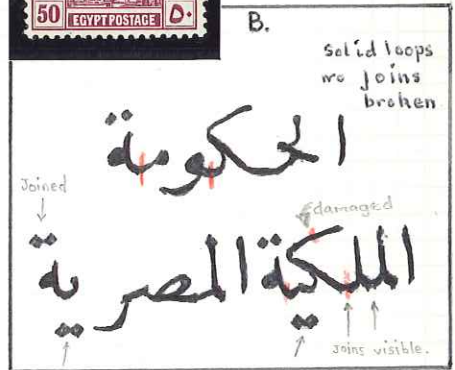 50 EGYPT POSTAGE ٥٠
B.
solid loops
no joins
broken
الحكومة
Joined
damaged
الملكية المصرية
Joins visible.